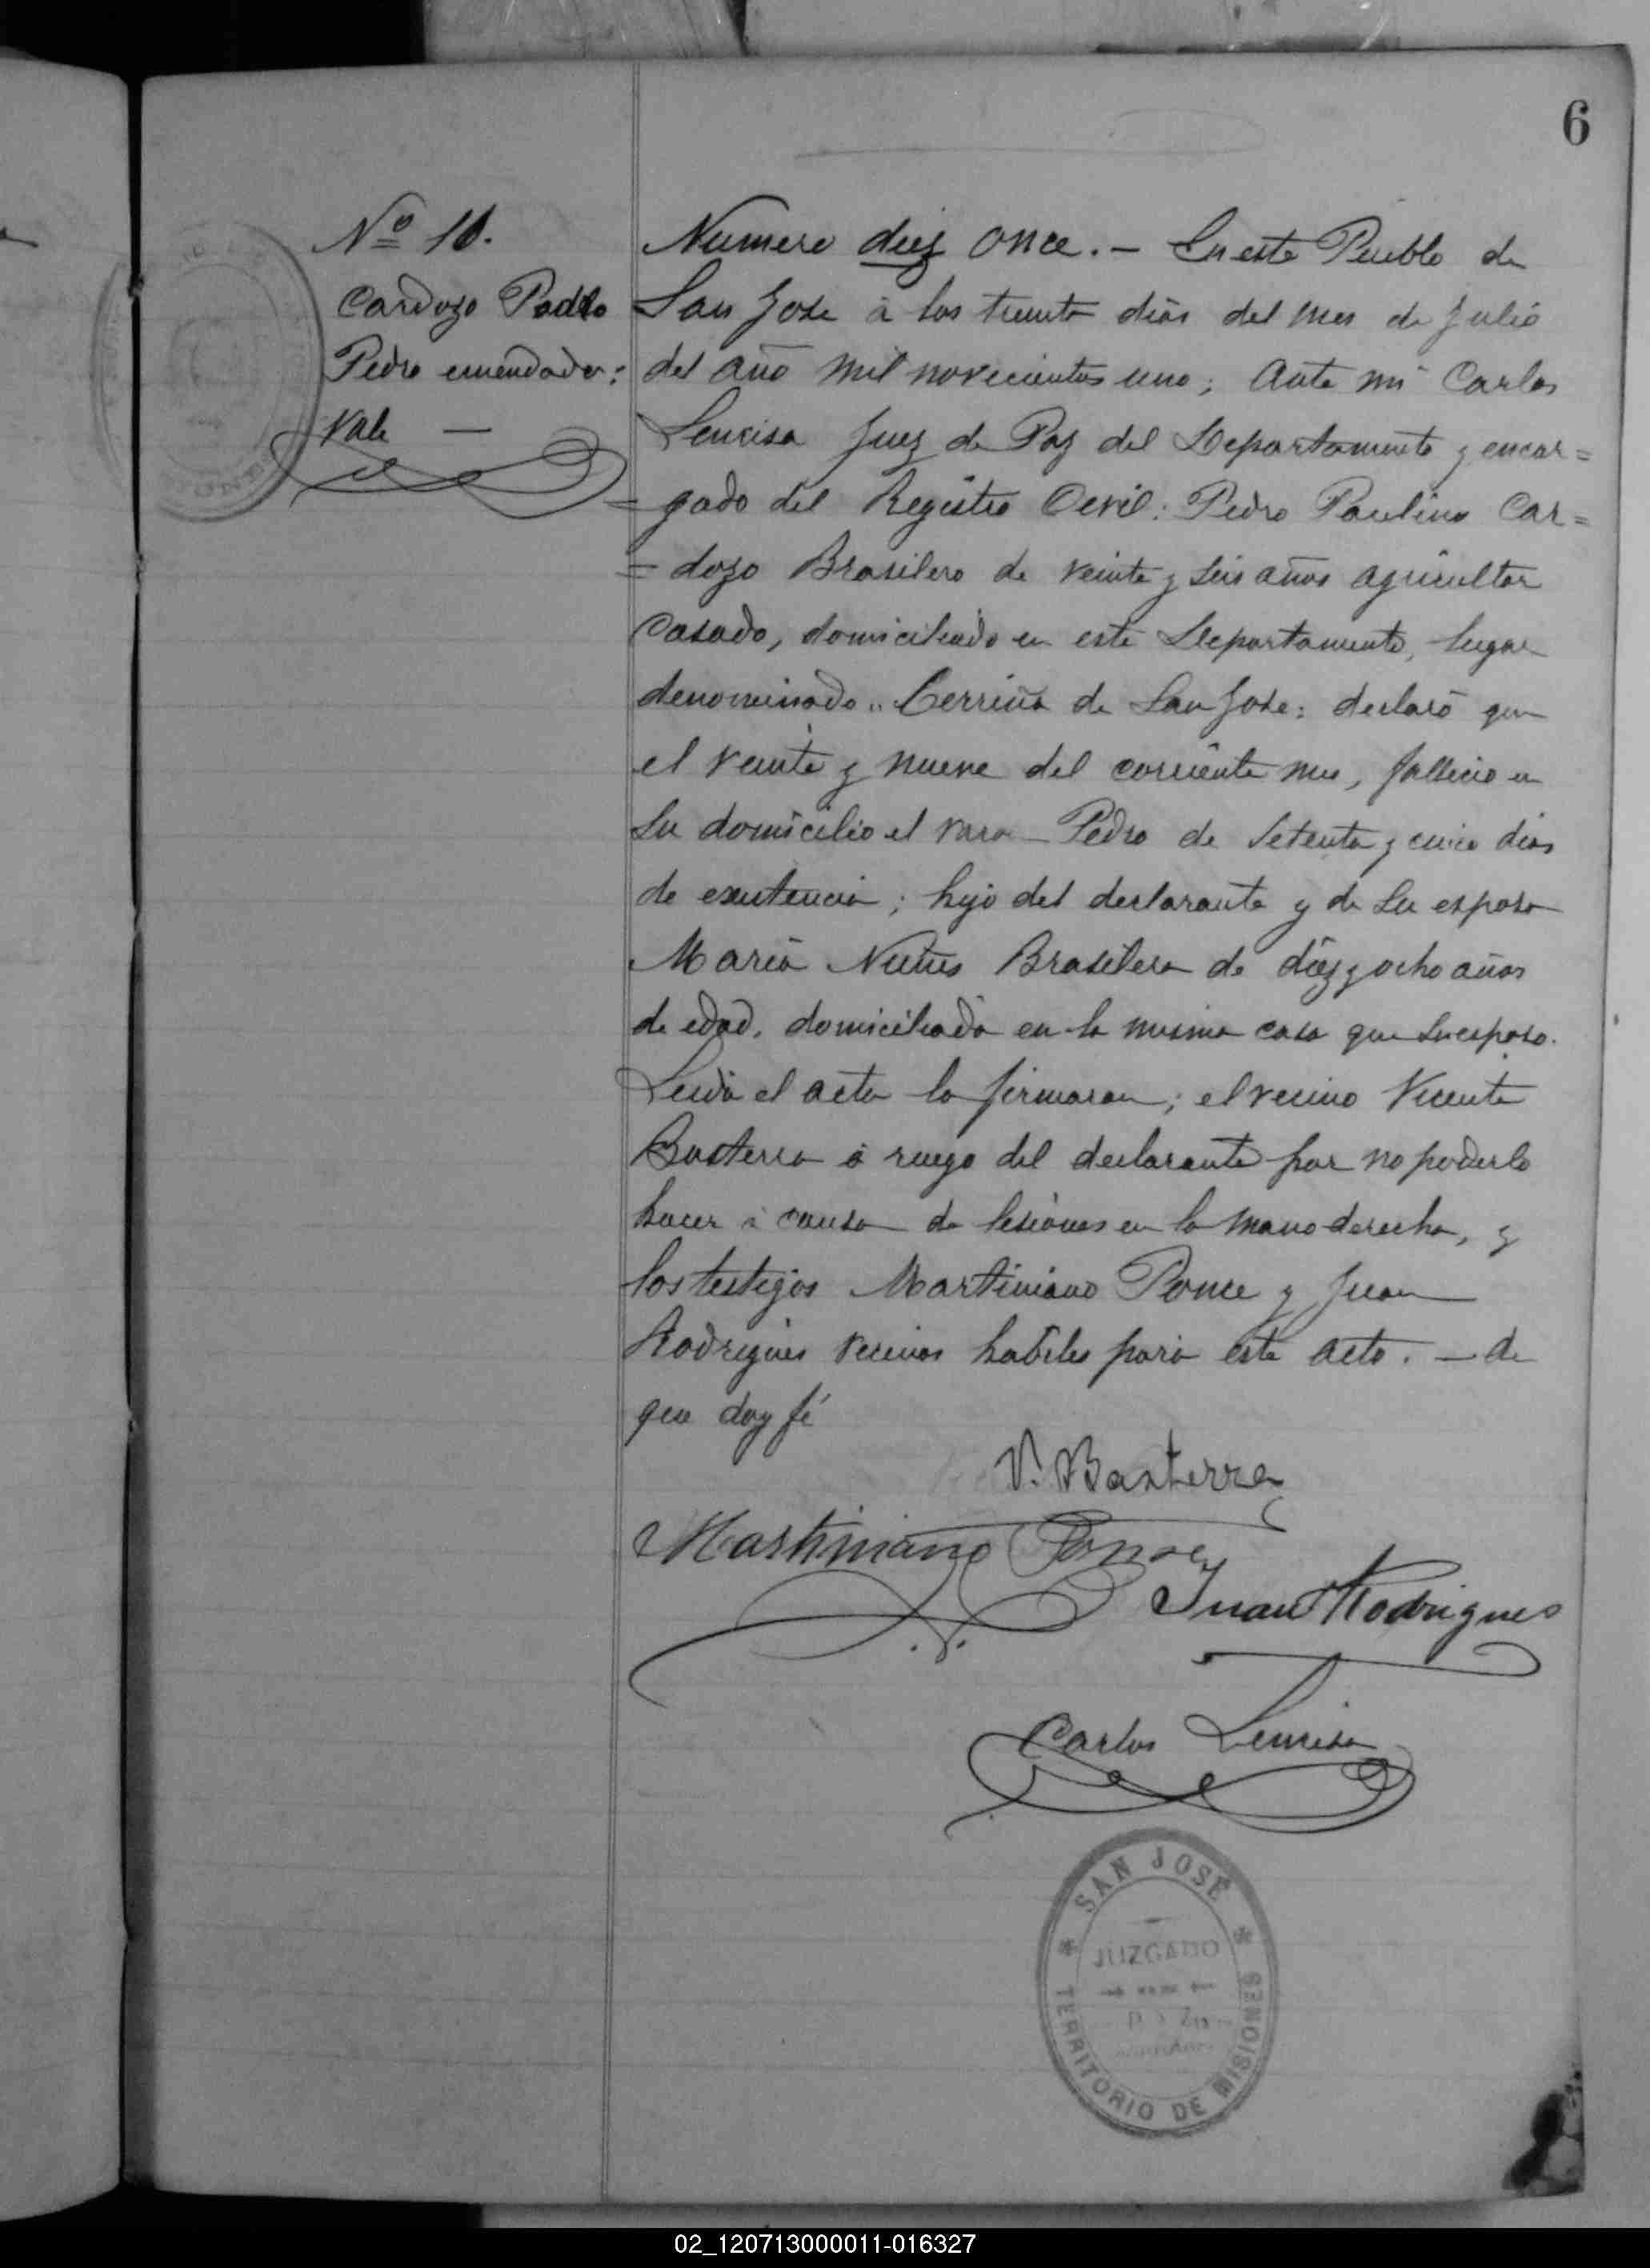 6
Nº 10.
Cardozo Pedro
Pedro enmendado:
Vale —
Numero diez once. — En este Pueblo de
San Jose á los treinta dias del mes de Julio
del año mil novecientos uno; Ante mi Carlos
Juez de Paz del Departamento y encar=
=gado del Registro Cevil: Pedro Paulino Car=
=dozo Brasilero de veinte y seis años agricultor
Casado, domiciliado en este Departamento, lugar
denominado " de San Jose: declaró que
el veinte y nueve del corriente mes, fallecio en
su domicilio el Pedro de setenta y cinco dias
de existencia; hijo del declarante y de su esposa
Maria Nuñes Brasilera de diez y ocho años
de edad, domiciliada en la misma casa que su esposo.
Leida el acta la firmaron; el vecino Vicente
Basterra á ruego del declarante por no poderlo
hacer á causa de lesiones en la mano derecha, y
los testigos Martiniano Ponce y Juan
Rodrigues vecinos habiles para este acto. — de
que doy fé
V. Basterra
Martiniano Ponce
Juan Rodrigues
Carlos
SAN JOSÉ
JUZGADO
TERRITORIO DE MISIONES
02_120713000011-016327